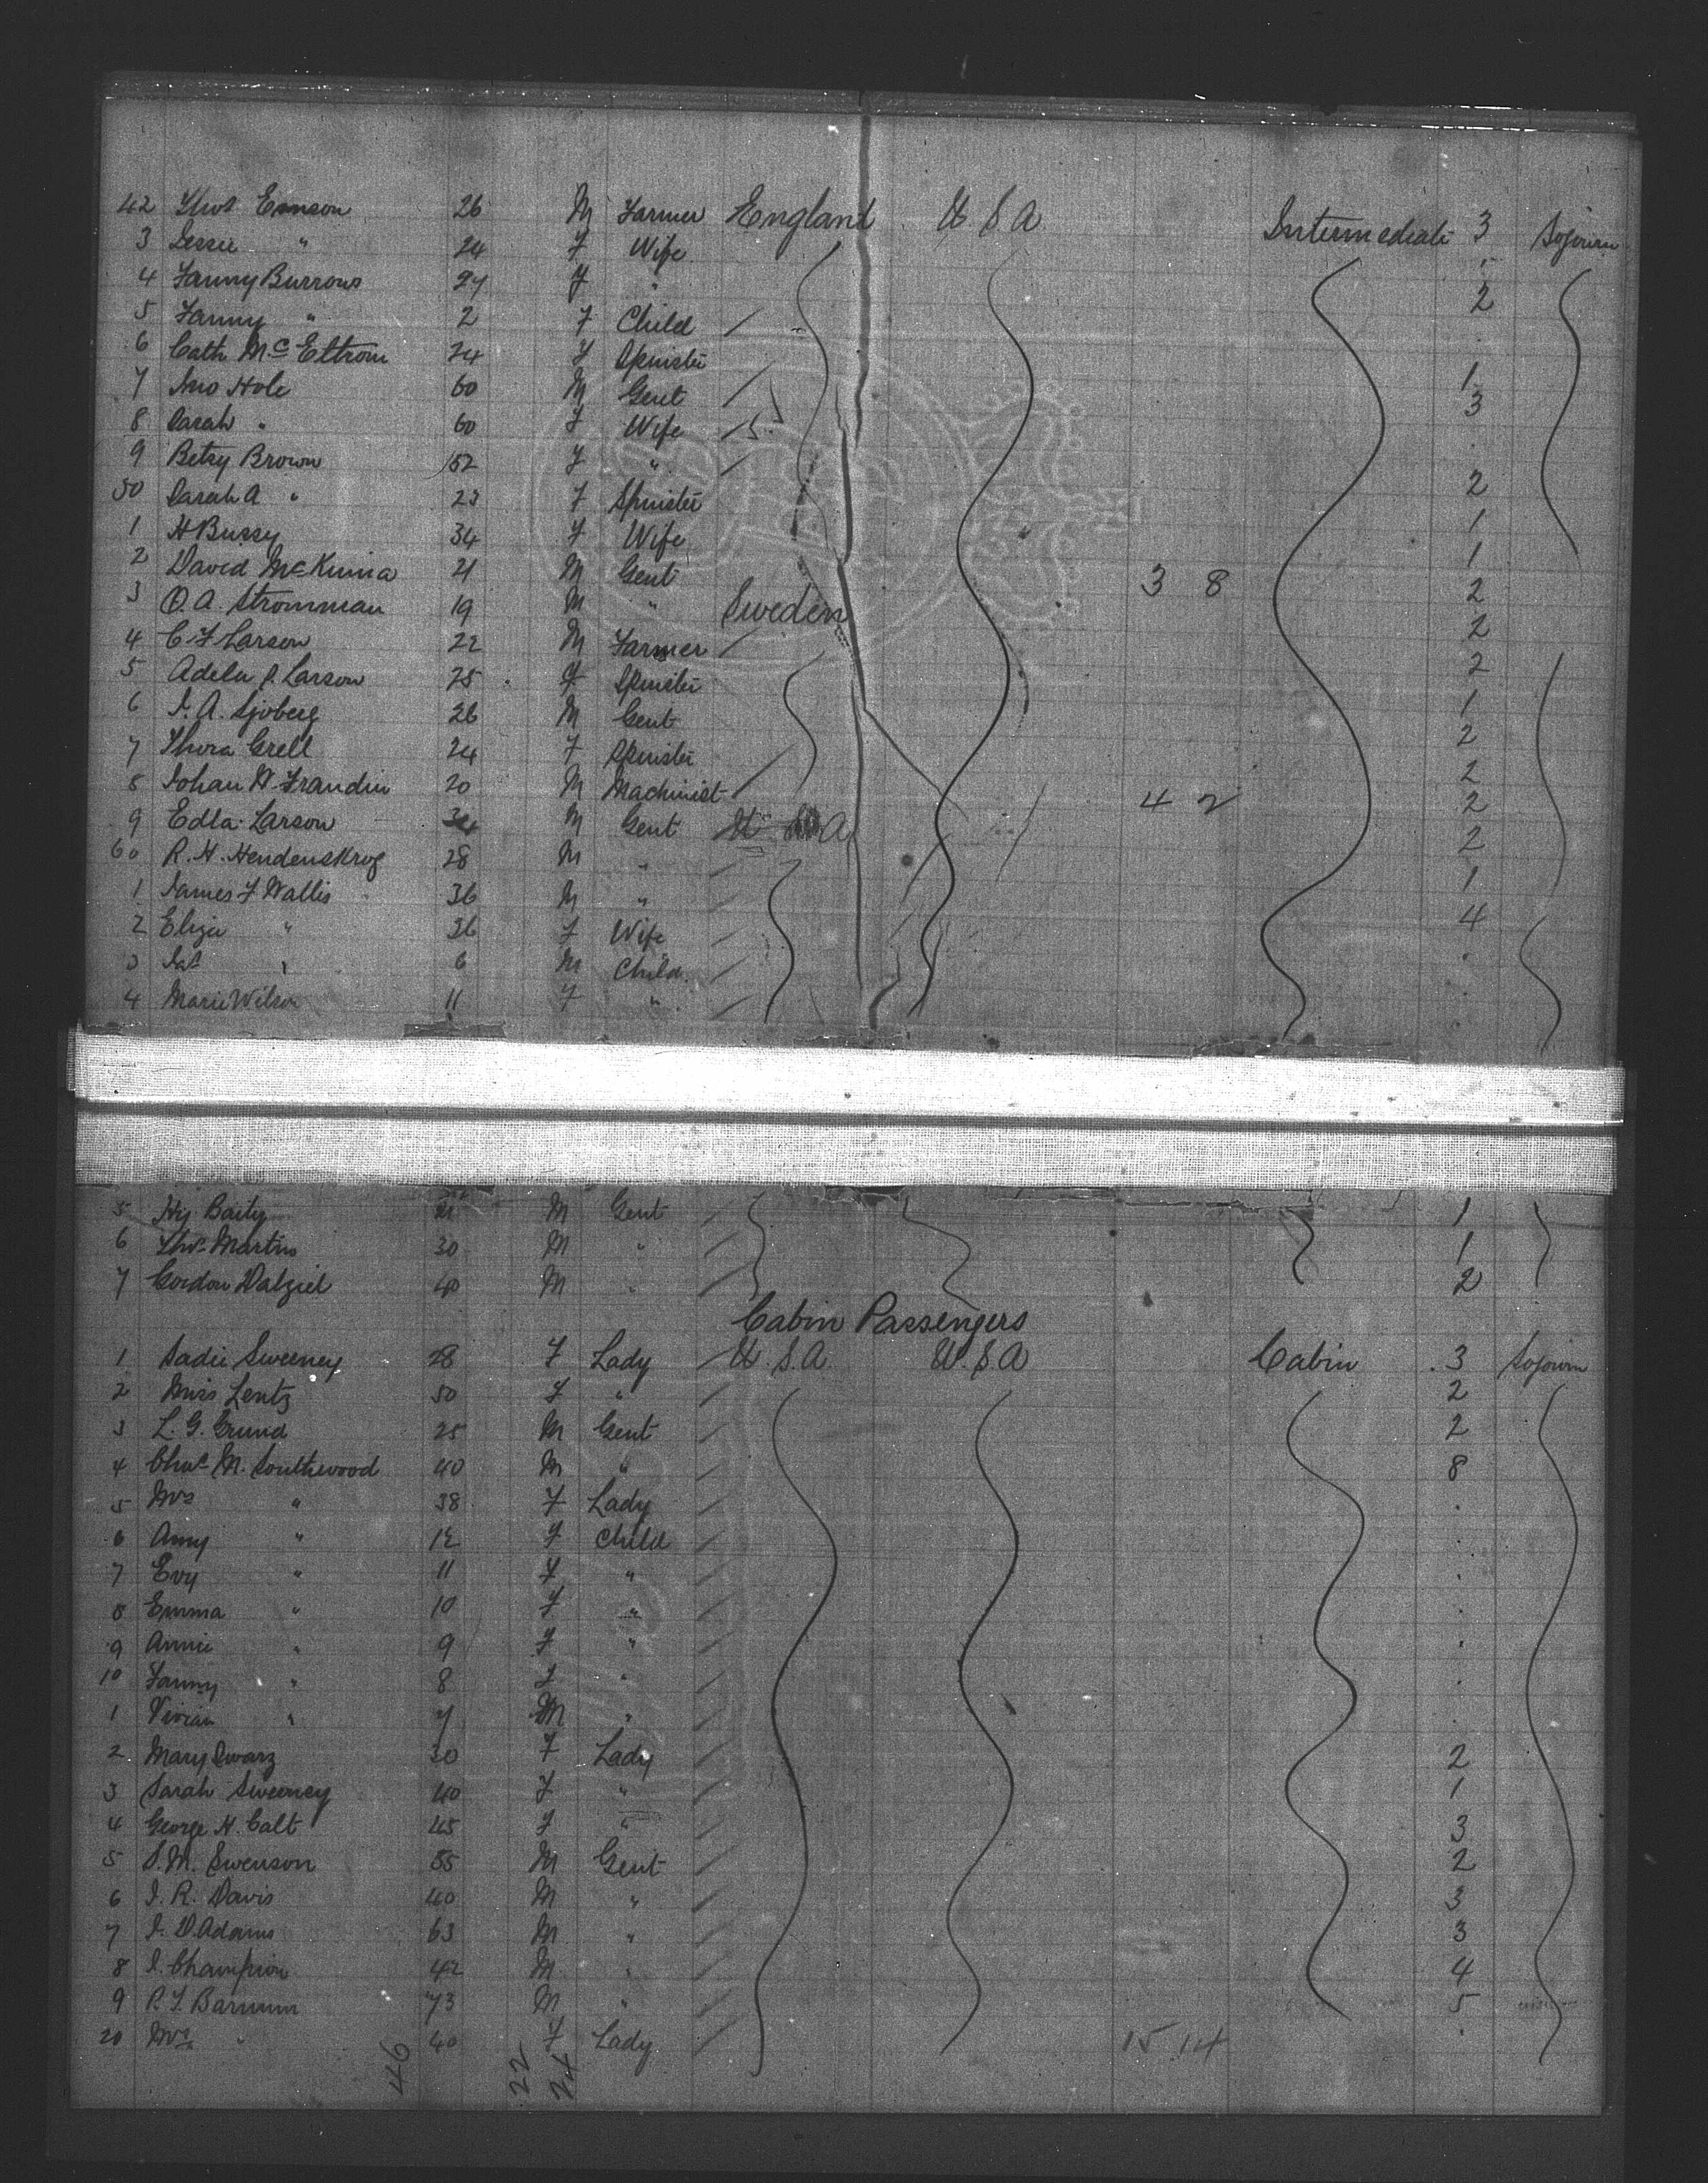 42 Thos Emson 26 M Farmer England U S A Intermediate 3 Sojourn
3 Jessie " 24 F Wife
4 Fanny Burrows 27 F " 2
5 Fanny " 2 F Child
6 Cath McEltrom 24 F Spinster 1
7 Jno Hole 60 M Gent 3
8 Sarah " 60 F Wife
9 Betsy Brown 52 F " 2
50 Sarah A " 23 F Spinster 1
1 H Bussy 34 F Wife 1
2 David McKinna 21 M Gent 3 8 2
3 O. A. Stromman 19 M " Sweden 2
4 C F Larson 22 M Farmer 2
5 Adela P. Larson 25 F Spinster 1
6 J. A. Sjoberg 26 M Gent 2
7 Thora Grell 24 F Spinster 2
8 Johan W. Frandin 20 M Machinist 4 2 2
9 Edla Larson 34 M Gent U S A 2
60 R. H. Hendenskrog 28 M " 1
1 James F Wallis 36 M " 4
2 Eliza " 36 F Wife
3 Jas " 6 M Child
4 Marie Wilson 11 F "
5 Hy Baily 21 M Gent 1
6 Thos Martins 30 M " 1
7 Gordon Dalziel 40 M " 2
Cabin Passengers
1 Sadie Sweeney 28 F Lady U.S.A U.S.A Cabin 3 Sojourn
2 Miss Lentz 50 F " 2
3 L. G. Grund 25 M Gent 2
4 Chas M. Southwood 40 M " 8
5 Mrs " 38 F Lady
6 Amy " 12 F Child
7 Evy " 11 F "
8 Emma " 10 F "
9 Annie " 9 F "
10 Fanny " 8 F "
1 Vivian " 7 M "
2 Mary Swarz 30 F Lady 2
3 Sarah Sweeney 40 F " 1
4 George H. Calt 45 F " 3
5 S. M. Swenson 55 M Gent 2
6 J. R. Davis 40 M " 3
7 J. D. Adams 63 M " 3
8 J. Champion 42 M " 4
9 P. T. Barnum 73 M " 5
20 Mrs " 40 F Lady 15 14
46 22 24